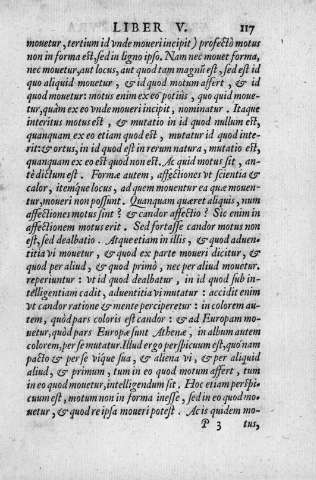 LIBER V. 117
mouetur, tertium id vnde moueri incipit) profectò motus
non in forma est, sed in ligno ipso. Nam nec mouet forma,
nec mouetur, aut locus, aut quod tam magnũ est, sed est id
quo aliquid mouetur, & id quod motum affert, & id
quod mouetur: motus enim ex eo potiùs, quo quid moue-
tur, quàm ex eo vnde moueri incipit, nominatur. Itaque
interitus motus est, & mutatio in id quod nullum est,
quanquam ex eo etiam quod est, mutatur id quod inte-
rit: & ortus, in id quod est in rerum natura, mutatio est,
quanquam ex eo est quod non est. Ac quid motus sit, an-
tè dictum est. Formæ autem, affectiones vt scientia &
calor, itémque locus, ad quem mouentur ea quæ mouen-
tur, moueri non possunt. Quanquam quæret aliquis, num
affectiones motus sint? & candor affectio? Sic enim in
affectionem motus erit. Sed fortasse candor motus non
est, sed dealbatio. Atque etiam in illis, & quod aduen-
titia vi mouetur, & quod ex parte moueri dicitur, &
quod per aliud, & quod primò, nec per aliud mouetur.
reperiuntur: vt id quod dealbatur, in id quod sub in-
telligentiam cadit, aduentitia vi mutatur: accidit enim
vt candor ratione & mente perciperetur: in colorem au-
tem, quòd pars coloris est candor: & ad Europam mo-
uetur, quòd pars Europæ sunt Athenæ, in album autem
colorem, per se mutatur. Illud ergo perspicuum est, quónam
pacto & per se vique sua, & aliena vi, & per aliquid
aliud, & primum, tum in eo quod motum affert, tum
in eo quod mouetur, intelligendum sit. Hoc etiam perspi-
cuum est, motum non in forma inesse, sed in eo quod mo-
uetur, & quod re ipsa moueri potest. Ac is quidem mo-
P 3 tus,